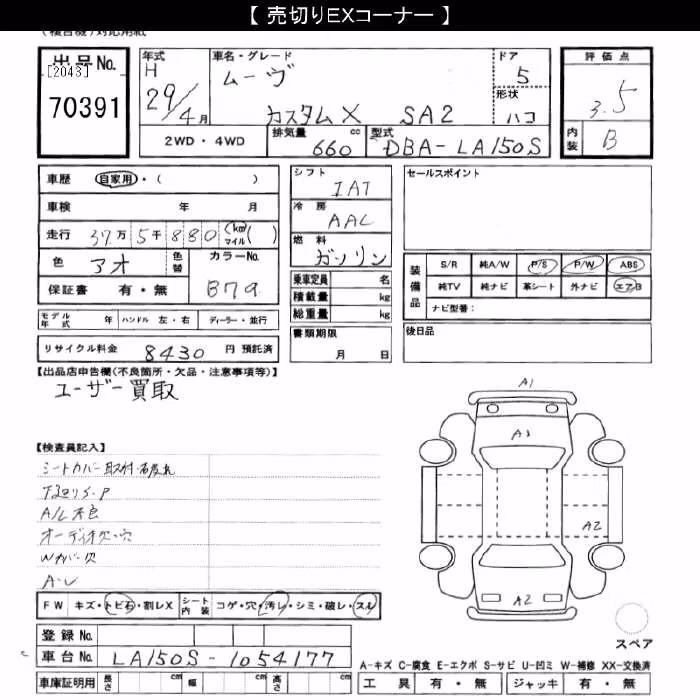 【 売切りEXコーナー 】
出品No.
[2043]
70391
年式
H
29/4月
車名・グレード
ムーヴ
カスタムX SA2
ドア
5
形状
ハコ
評価点
3.5
内装
B
2WD・4WD
排気量 660 cc
型式 DBA-LA150S
車歴 自家用・( )
車検 年 月
走行 37万5千880 (km マイル)( )
色 アオ
色替
カラーNo.
B79
保証書 有・無
モデル年式 年 ハンドル 左・右 ディーラー・並行
リサイクル料金 8430 円 預託済
シフト
IAT
冷房
AAC
燃料
ガソリン
乗車定員 名
積載量 kg
総重量 kg
書類期限
月 日
セールスポイント
装備品
S/R 純A/W P/S P/W ABS
純TV 純ナビ 革シート 外ナビ エアB
ナビ型番:
後日品
【出品店申告欄(不良箇所・欠品・注意事項等)】
ユーザー買取
【検査員記入】
シートカバー取付
下廻りS・P
A/L不良
オーディオ欠・穴
Wカバー欠
A・U
A1
A3
A2
A2
FW キズ・トビ石・割レX
シート内装 コゲ・穴・汚レ・シミ・破レ・スレ
登録No.
車台No. LA150S-1054177
車庫証明用 長さ cm 幅 cm 高さ cm
スペア
A-キズ C-腐食 E-エクボ S-サビ U-凹ミ W-補修 XX-交換済
工具 有・無 ジャッキ 有・無